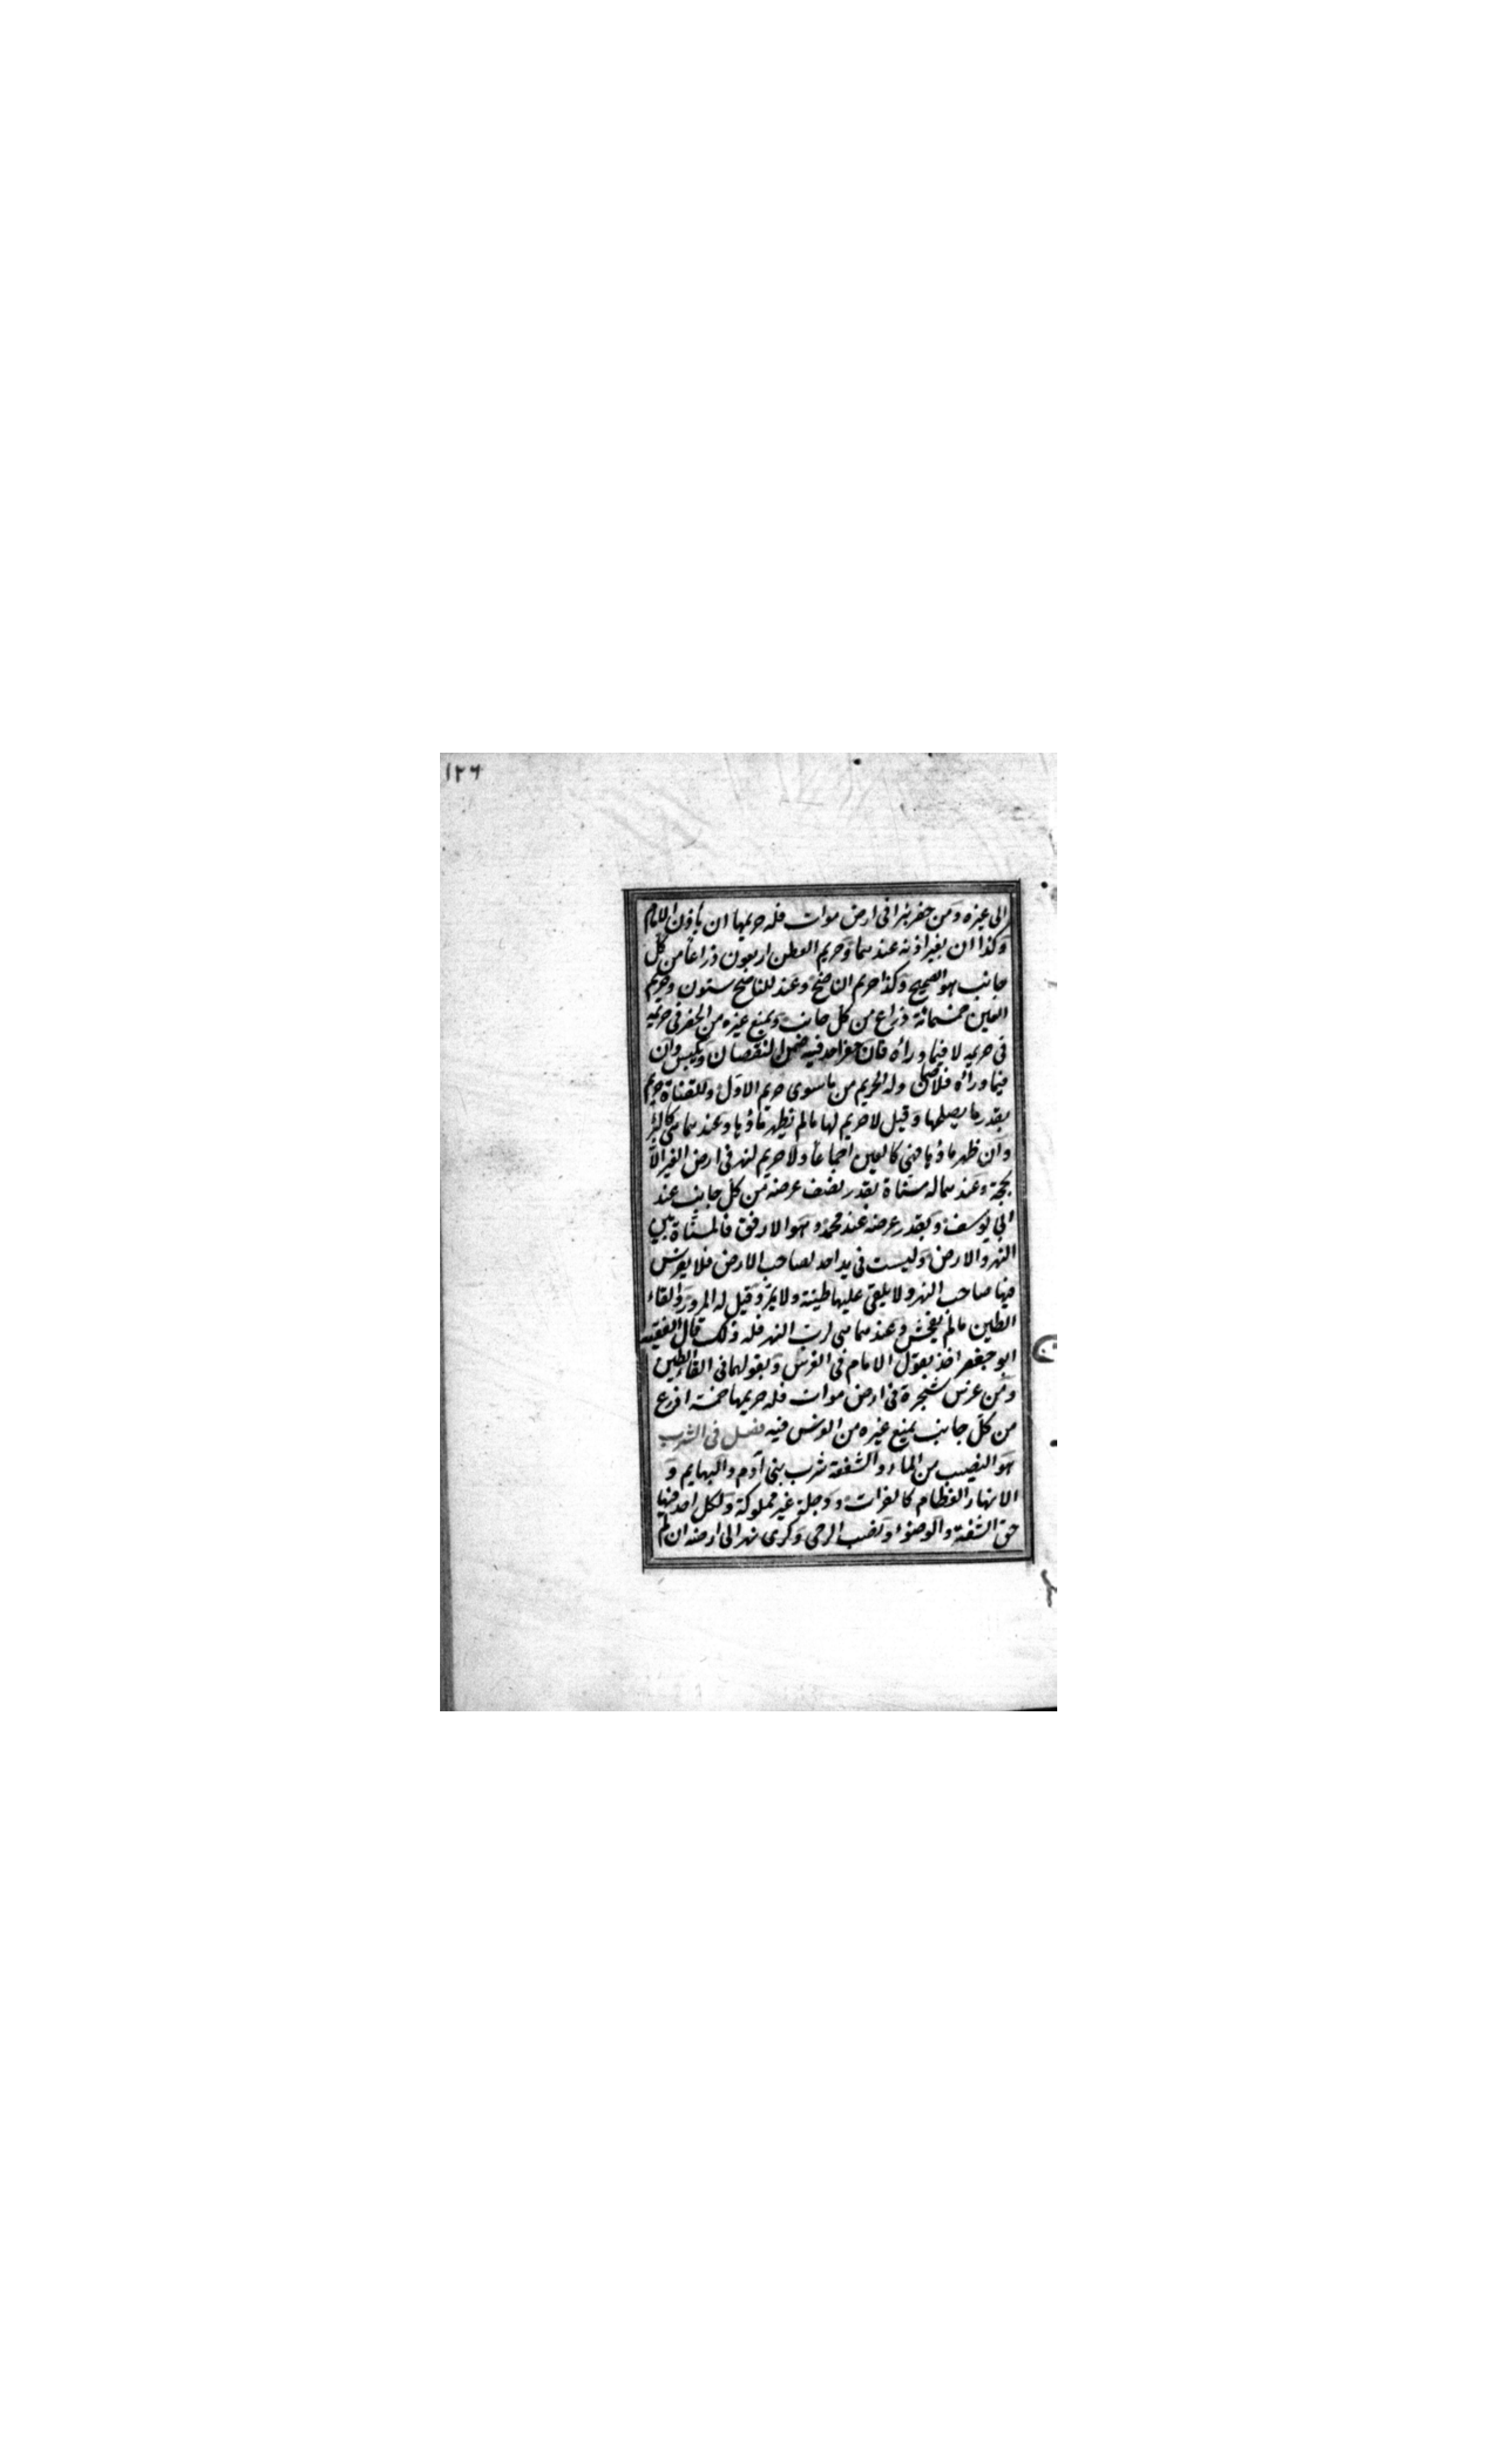 ١٢٦
الى غيره ومن حفر بئرا فى ارض موات فله حريمها ان باذن الامام
وكذا ان بغير اذنه عندهما وحريم العطن اربعون ذراعا من كل
جانب هو الصحيح وكذا حريم الناضح وعند للناضح ستون وحريم
العين خمسمائة ذراع من كل جانب ويمنع غيره من الحفر فى حريمه
فى حريمه لا فيما وراءه فان حفر احد فيه ضمن النقصان ويكبس وان
فيما وراءه فلا ضمان وله الحريم من ما سوى حريم الاول وللقناة حريم
بقدر ما يصلحها وقيل لا حريم لها ما لم يظهر ماؤها وعندهما هى كالبئر
وان ظهر ماؤها فهى كالعين اجماعا ولا حريم لنهر فى ارض الغير الا
بحجة وعندهما له مسناة بقدر نصف عرضه من كل جانب عند
ابى يوسف وبقدر عرضه عند محمد وهو الارفق فالمسناة بين
النهر والارض وليست فى يد احد لصاحب الارض فلا يغرس
فيها صاحب النهر ولا يلقى عليها طينه ولا يمر وقيل له المرور والقاء
الطين ما لم يفحش وعندهما هى لرب النهر فله ذلك قال الفقيه
ابو جعفر اخذ بقول الامام فى الغرس وبقولهما فى القاء الطين
ومن غرس شجرة فى ارض موات فله حريمها خمسة اذرع
من كل جانب يمنع غيره من الغرس فيه فصل فى الشرب
هو النصيب من الماء والشفة شرب بنى آدم والبهايم و
الانهار العظام كالفرات ودجلة غير مملوكة ولكل احد فيها
حق الشفة والوضوء ونصب الرحى وكرى نهر الى ارضه ان لم